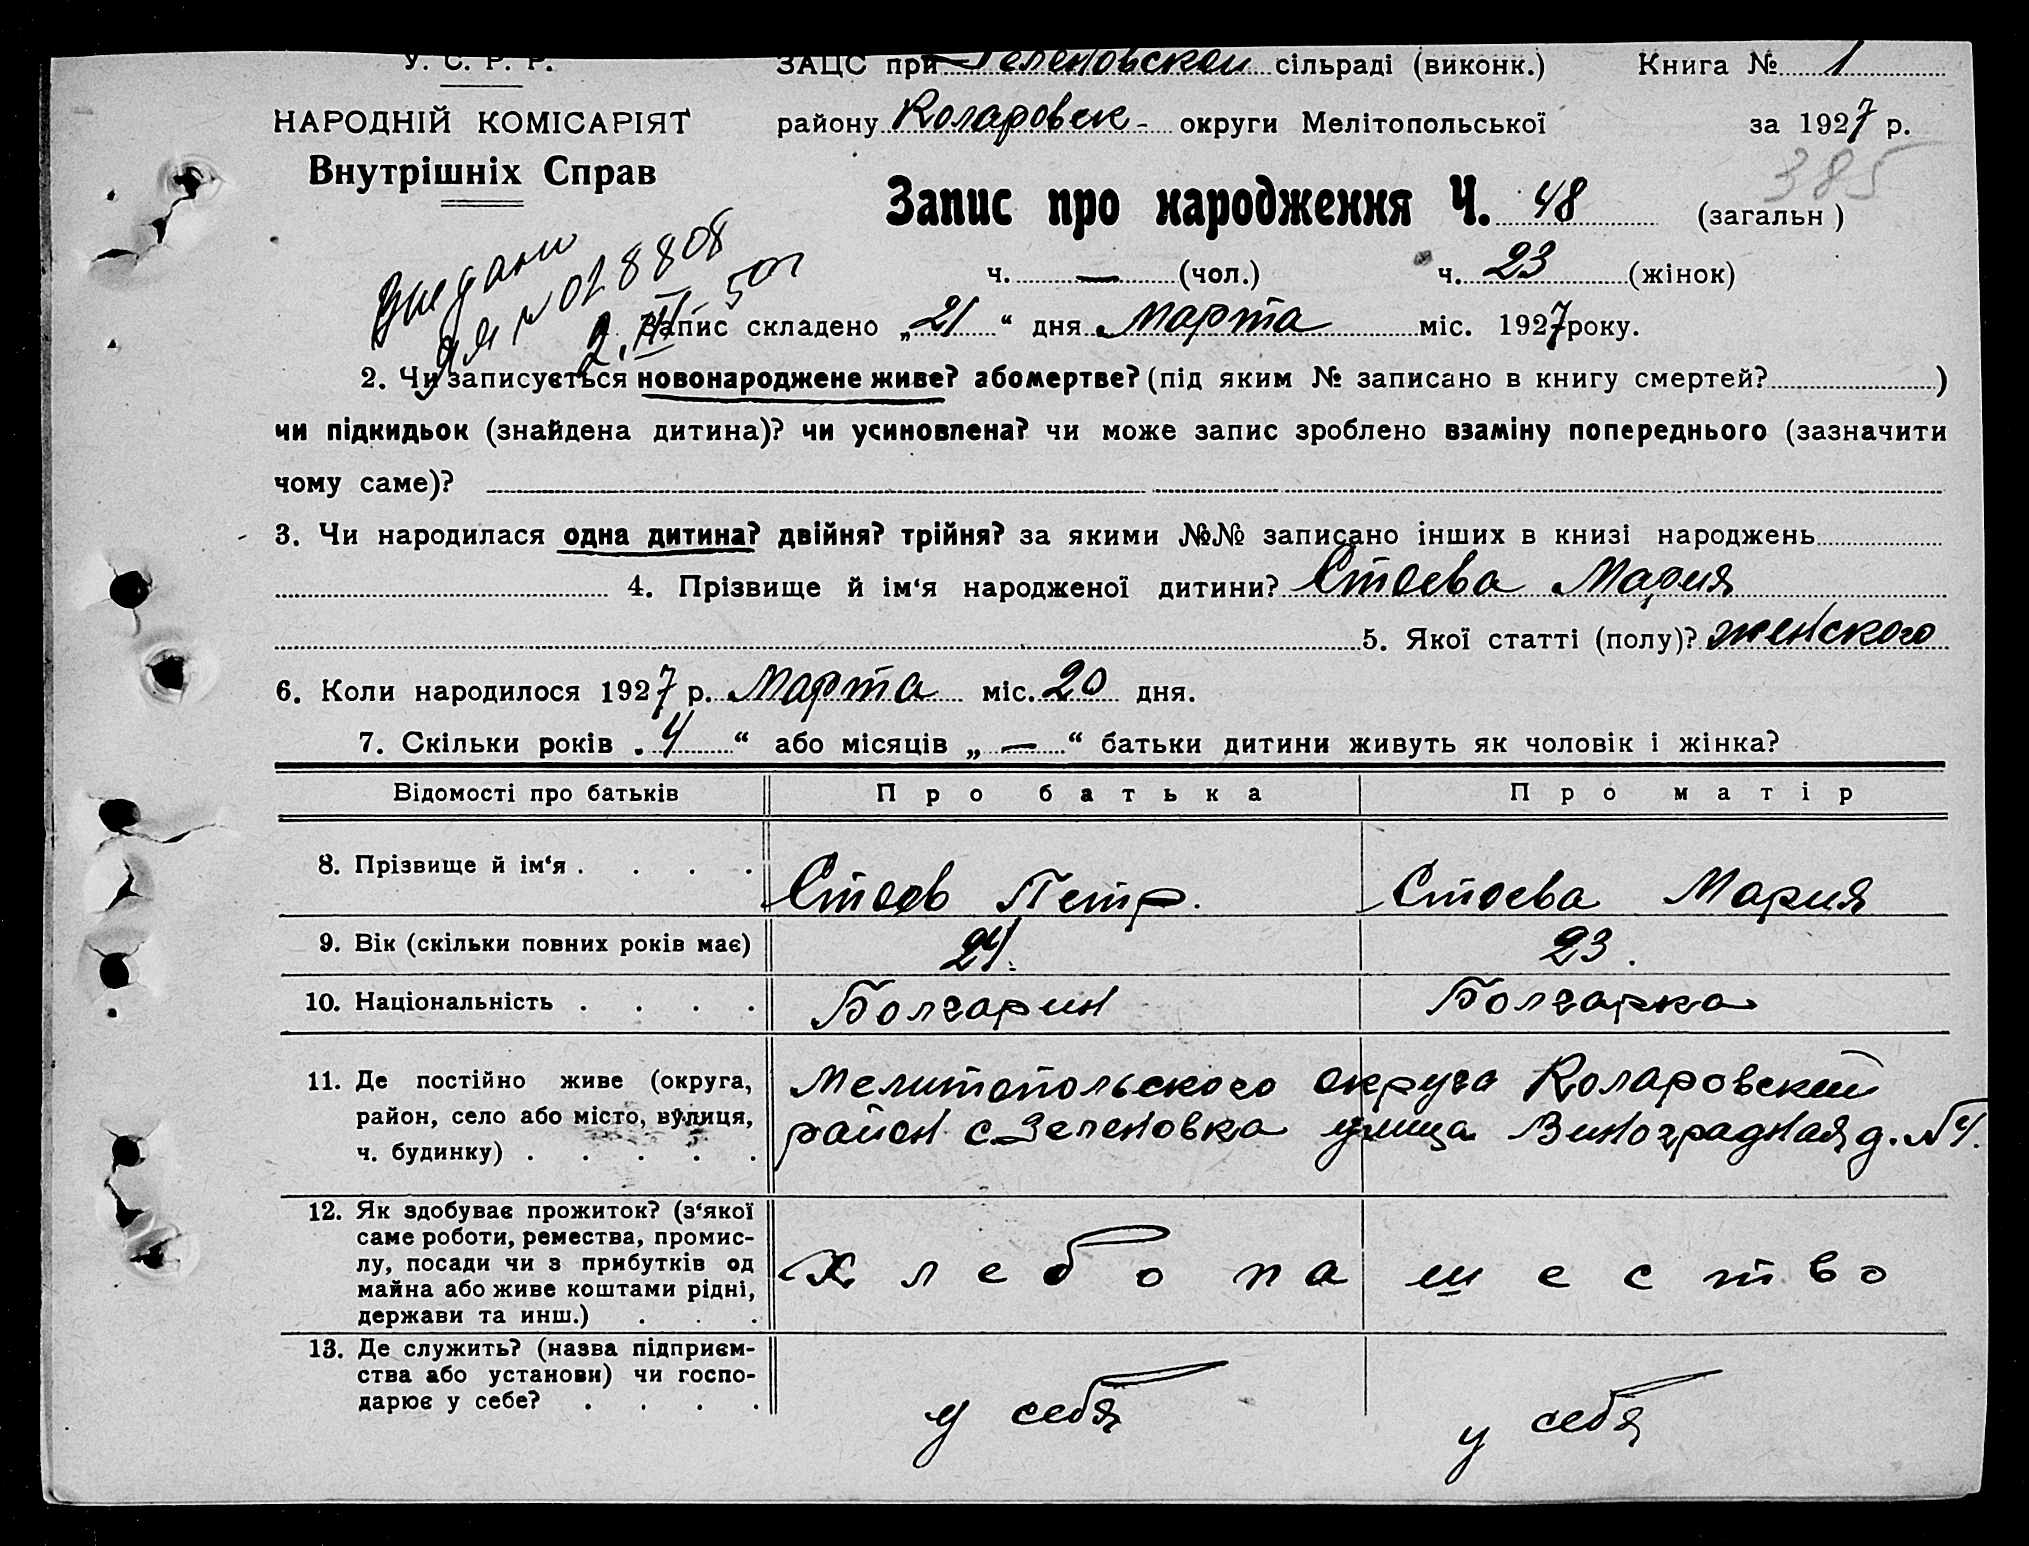 У. С. Р. Р.
ЗАЦС при Зеленовской сільраді (виконк.) Книга № 1
НАРОДНІЙ КОМІСАРІЯТ
району Коларовск- округи Мелітопольської за 1927 р.
Внутрішніх Справ
385
Запис про народження Ч. 48 (загальн )
ч. — (чол.) ч. 23 (жінок)
018808
2. III 50 г
Запис складено „21“ дня Марта міс. 1927 року.
2. Чи записується новонароджене живе? або мертве? (під яким № записано в книгу смертей? )
чи підкидьок (знайдена дитина)? чи усиновлена? чи може запис зроблено взаміну попереднього (зазначити
чому саме)?
3. Чи народилася одна дитина? двійня? трійня? за якими №№ записано інших в книзі народжень
4. Прізвище й ім‘я народженої дитини? Стоева Мария
5. Якої статті (полу)? женского
6. Коли народилося 1927 р. Марта міс. 20 дня.
7. Скільки років „4“ або місяців „—“ батьки дитини живуть як чоловік і жінка?
Відомості про батьків Про батька Про матір
8. Прізвище й ім‘я . . . . Стоев Петр. Стоева Мария
9. Вік (скільки повних років має) 24. 23.
10. Національність . . . . Болгарин Болгарка
11. Де постійно живе (округа,
район, село або місто, вулиця,
ч. будинку) . . . . .
Мелитопольского округа Коларовский
район с. Зеленовка улица Виноградная д. №4.
12. Як здобуває прожиток? (з‘якої
саме роботи, ремества, промис-
лу, посади чи з прибутків од
майна або живе коштами рідні,
держави та инш.) . . .
Хлебопашество
13. Де служить? (назва підприєм-
ства або установи) чи госпо-
дарює у себе? . . . .
у себя у себя